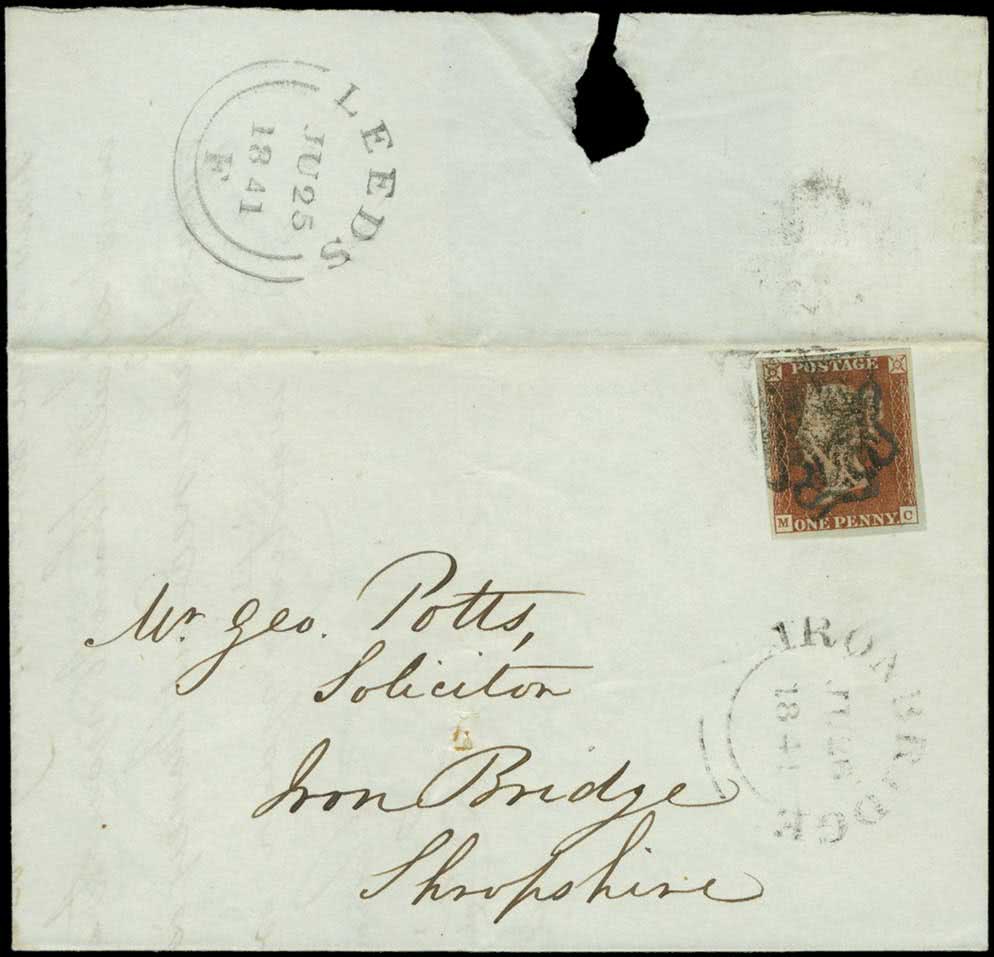 LEEDS
JU 25
1841
F
POSTAGE
M ONE PENNY. C
Mr. Geo. Potts,
Solicitor
Iron Bridge
Shropshire
IRONBRIDGE
1841